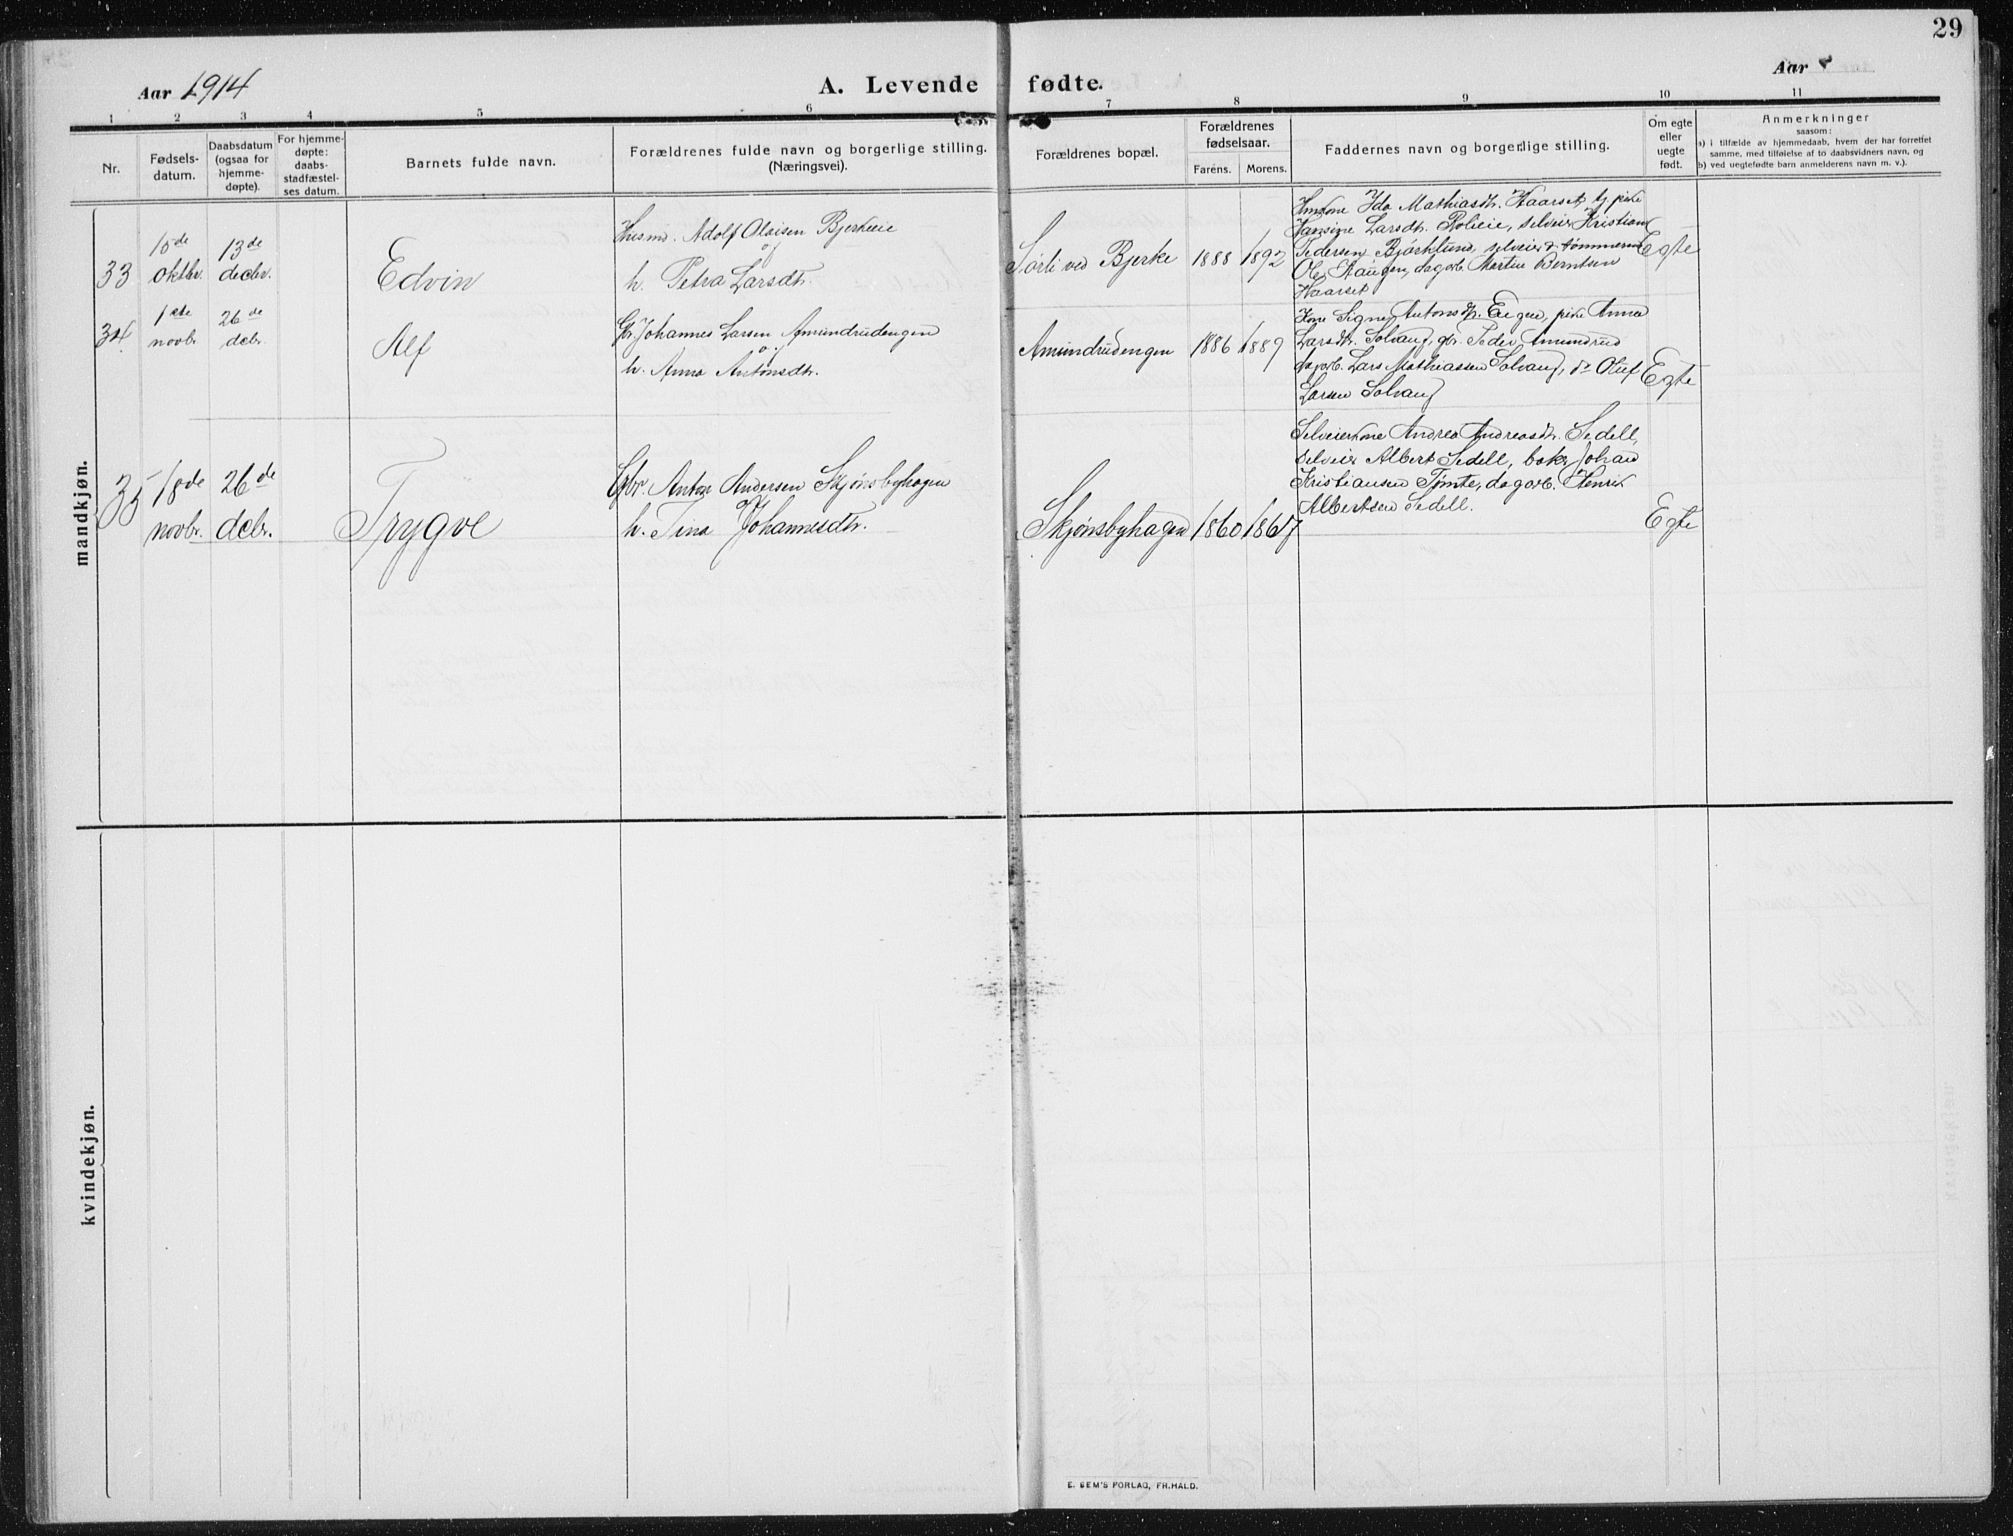 29
Aar 1914
A. Levende fødte.
Aar
1 2 3 4 5 6 7 8 9 10 11
Nr.
Fødsels-
datum.
Daabsdatum
(ogsaa for
hjemme-
døpte).
For hjemme-
døpte:
daabs-
stadfæstel-
ses datum.
Barnets fulde navn.
Forældrenes fulde navn og borgerlige stilling.
(Næringsvei).
Forældrenes bopæl.
Forældrenes
fødselsaar.
Farens. Morens.
Faddernes navn og borgerlige stilling.
Om egte
eller
uegte
født.
Anmerkninger
saasom:
a) i tilfælde av hjemmedaab, hvem der har forrettet
samme, med tilføielse af to daabsvidners navn, og
b) ved uegtefødte barn anmelderens navn m. v.).
mandkjøn.
33
10de
oktbr.
13de
decbr.
Edvin
Husmd. Adolf Olaisen Bjerkeeie
og
h. Petra Larsdtr.
Sørli ved Bjerke
1888
1892
Ida Mathiasdtr. Haarset, pike
Hansine Larsdtr. selveier Kristian
Pedersen Bjørklund, selveier & tømmerm.
Ole Haugen, dagarb. Martin Berntsen
Haarset
Egte
34
1ste
novbr.
26de
dcbr.
Alf
Gbr. Johannes Larsen Amundrudengen
o.
h. Anna Antonsdtr.
Amundrudengen
1886
1889
Kone Signe Antonsdtr. Engen, pike Anna
Larsdtr. Solvang, gbr. Peder Amundrud
dagarb. Lars Mathiassen Solvang, do Oluf
Larsen Solvang
Egte
35
18de
novbr.
26de
dcbr.
Trygve
Gbr. Anton Andersen Skjønsbyhagen
og
h. Tina Johannesdtr.
Skjønsbyhagen
1860
1867
Selveierkone Andrea Andreasdtr. Sedell,
selveier Albert Sedell, baker Johan
Kristiansen Tomte, dagarb. Henrik
Albertsen Sedell.
Egte
kvindekjøn.
E. SEM'S FORLAG, FR.HALD.